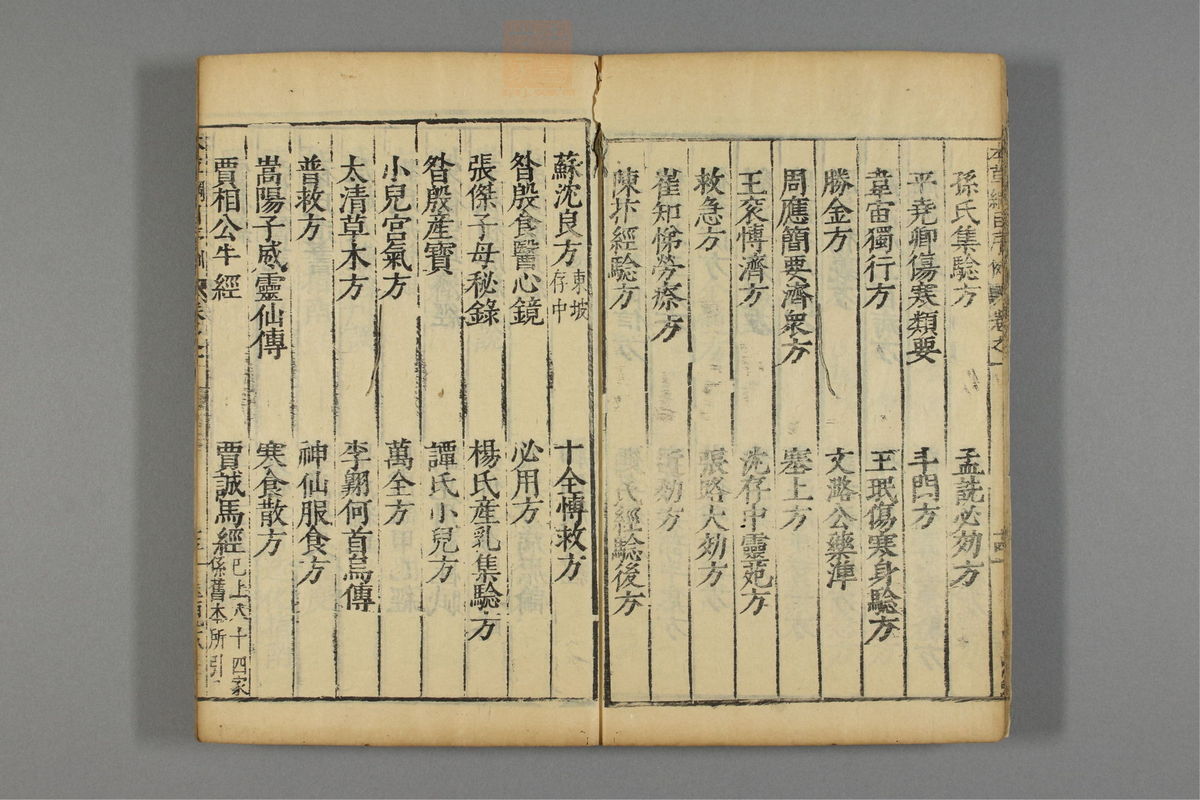 孫氏集驗方　孟詵必効方
平堯卿傷寒類要　斗門方
韋宙獨行方　王珉傷寒身驗方
勝金方　文潞公藥凖
周應簡要濟衆方　塞上方
王袞愽濟方　沈存中靈苑方
救急方　張路大効方
崔知悌勞瘵方
陳抃經驗方　經驗後方
蘇沈良方東坡存中　十全愽救方
昝殷食醫心鏡　必用方
張傑子母秘錄　楊氏産乳集驗方
昝殷産寶　譚氏小兒方
小兒宮氣方　萬全方
太清草木方　李翱何首烏傳
普救方　神仙服食方
嵩陽子威靈仙傳　寒食散方
賈相公牛經　賈誠馬經已上八十四家係舊本所引